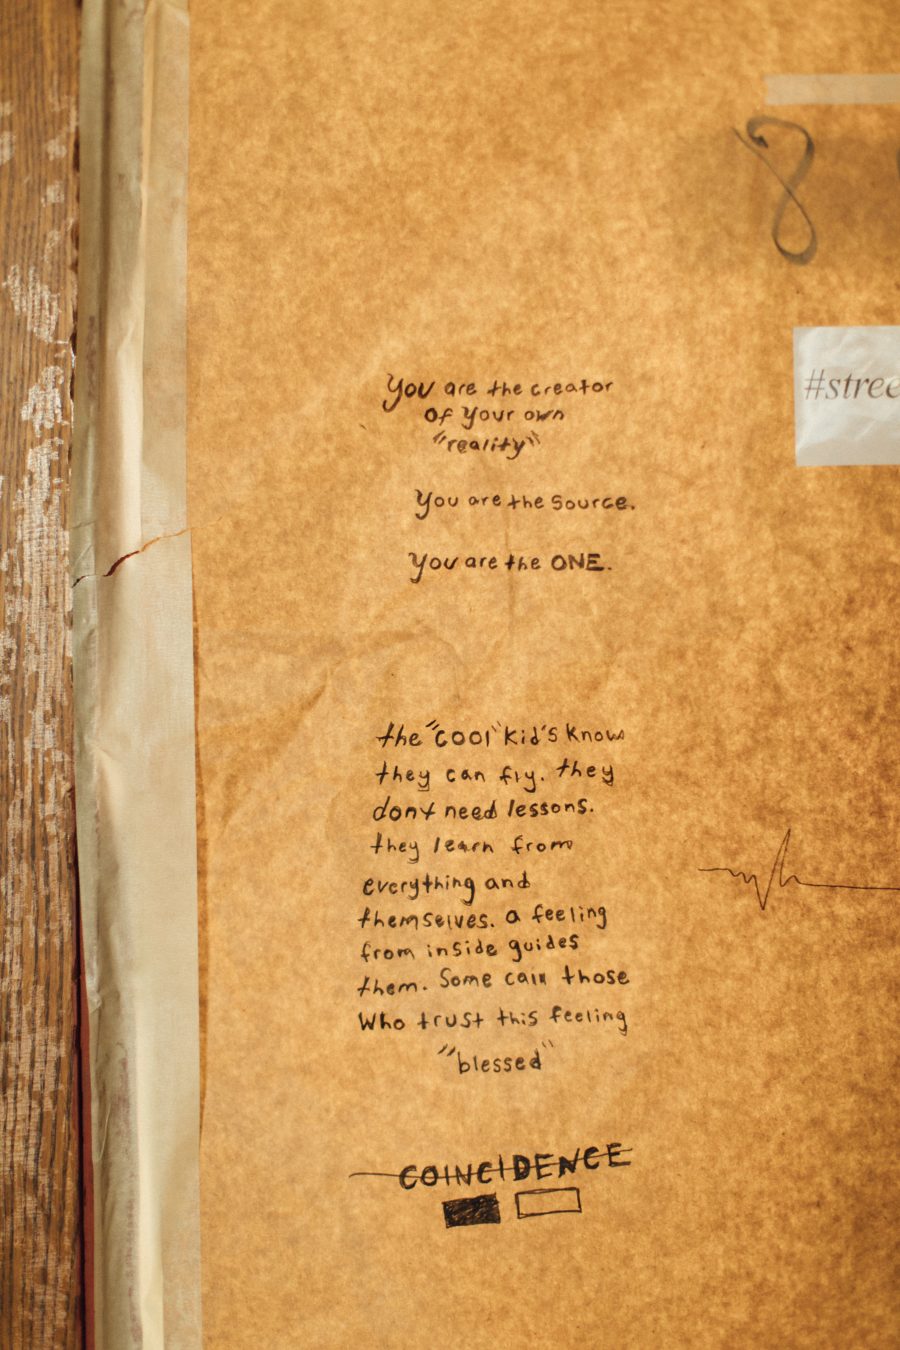 8
#stree
You are the creator
of your own
"reality"
You are the source.
You are the ONE.
the "cool" kid's know
they can fly. they
dont need lessons.
they learn from
everything and
themselves. a feeling
from inside guides
them. Some call those
Who trust this feeling
"blessed"
COINCIDENCE